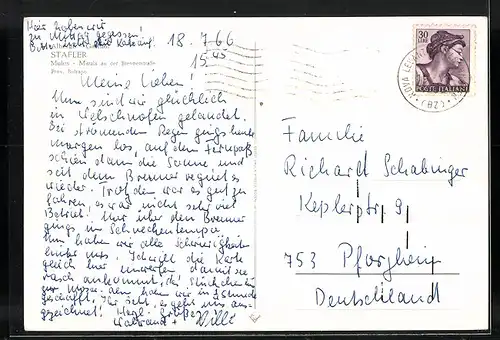 Hier haben wir
zu Mittag gegessen!
18.7.66
15 45
STAFLER
Mauls an der Brennerstraße
Prov. Bolzano
Meine Lieben!
Nun sind wir glücklich
in Welschnofen gelandet.
Bei strömendem Regen gings heute
morgen los, auf dem Fernpaß
schien dann die Sonne und
seit dem Brenner regnet es
wieder. Trotzdem war es gut zu
fahren, es war nicht sehr viel
Betrieb. Nur über den Brenner
gings im Schneckentempo.
Nun haben wir alle Schwierigkeit
hinter uns. Ich will die Karte
gleich hier einwerfen damit sie
rasch ankommt. Ihr
geschafft. Ihr seht, es geht uns aus-
gezeichnet! Herzl. Grüße
Waltraud + Willi
30
LIRE
POSTE ITALIANE
NOVA LEVANTE
(BZ)
Familie
Richard Schabinger
Keplerstr. 9
753 Pforzheim
Deutschland